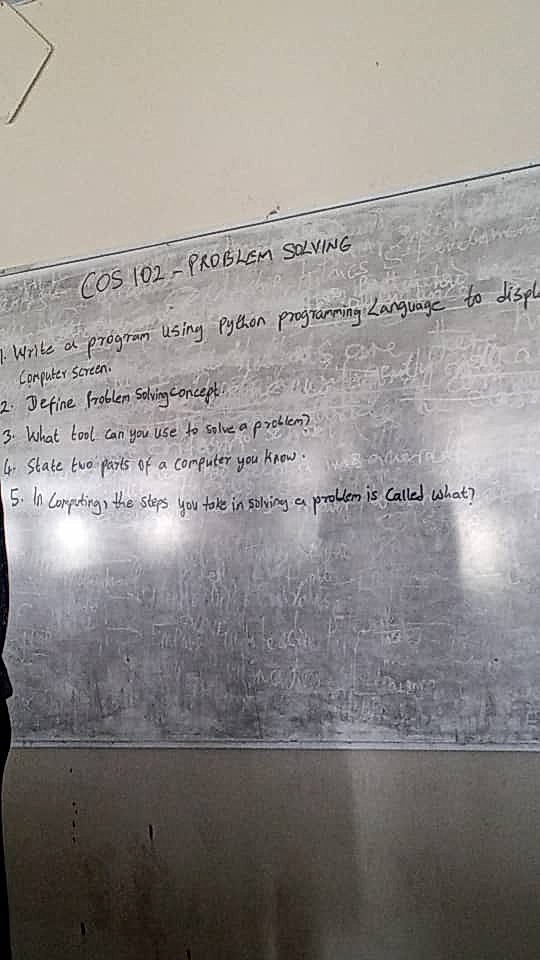 COS 102 - PROBLEM SOLVING
1. Write a program using Python programming Language to displ
Computer Screen.
2. Define Problem Solving Concept.
3. What tool can you use to solve a problem?
4. State two parts of a computer you know.
5. In Computing, the steps you take in solving a problem is Called what?